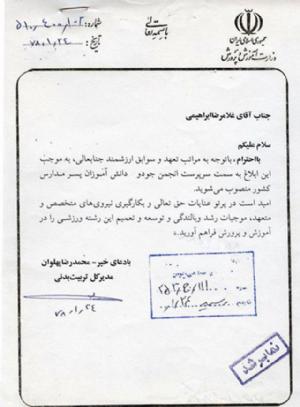 باسمه تعالی
جمهوری اسلامی ایران
وزارت آموزش و پرورش
شماره:
تاریخ: ۷۸/۱/۲۴
جناب آقای غلامرضا ابراهیمی
سلام علیکم
بااحترام، باتوجه به مراتب تعهد و سوابق ارزشمند جنابعالی، به موجب
این ابلاغ به سمت سرپرست انجمن جودو دانش آموزان پسر مدارس
کشور منصوب می‌شوید.
امید است در پرتو عنایات حق تعالی و بکارگیری نیروی‌های متخصص و
متعهد، موجبات رشد وبالندگی و توسعه و تعمیم این رشته ورزشی را در
آموزش و پرورش فراهم آورید.
بادعای خیر - محمدرضا پهلوان
مدیرکل تربیت‌بدنی
۷۸/۱/۲۴
نمابر شد